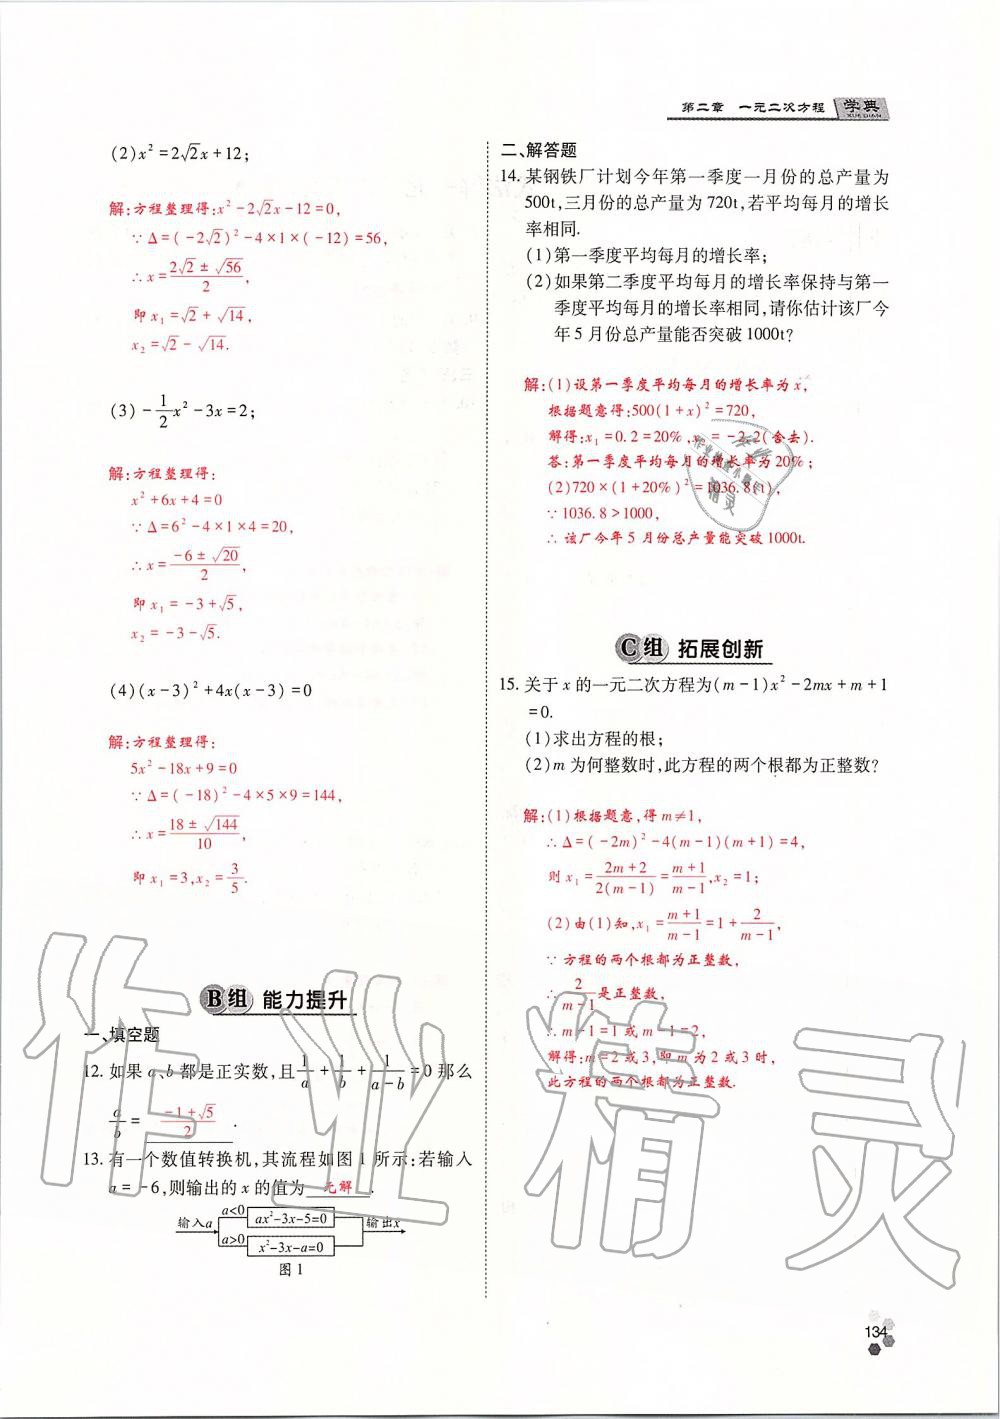 第二章 一元二次方程 学典
XUE DIAN
(2)x²=2√2x+12;
解:方程整理得:x²-2√2x-12=0,
∵Δ=(-2√2)²-4×1×(-12)=56,
∴x=(2√2±√56)/2,
即 x₁=√2+√14,
x₂=√2-√14.
(3)-1/2x²-3x=2;
解:方程整理得:
x²+6x+4=0
∵Δ=6²-4×1×4=20,
∴x=(-6±√20)/2,
即 x₁=-3+√5,
x₂=-3-√5.
(4)(x-3)²+4x(x-3)=0
解:方程整理得:
5x²-18x+9=0
∵Δ=(-18)²-4×5×9=144,
∴x=(18±√144)/10,
即 x₁=3,x₂=3/5.
B组 能力提升
一、填空题
12. 如果 a、b 都是正实数,且1/a+1/b+1/(a-b)=0 那么
a/b= (-1+√5)/2 .
13. 有一个数值转换机,其流程如图 1 所示:若输入
a=-6,则输出的 x 的值为 无解 .
输入a a<0 ax²-3x-5=0 输出x
a>0 x²-3x-a=0
图 1
二、解答题
14. 某钢铁厂计划今年第一季度一月份的总产量为
500t,三月份的总产量为 720t,若平均每月的增长
率相同.
(1)第一季度平均每月的增长率;
(2)如果第二季度平均每月的增长率保持与第一
季度平均每月的增长率相同,请你估计该厂今
年 5 月份总产量能否突破 1000t?
解:(1)设第一季度平均每月的增长率为 x,
根据题意得:500(1+x)²=720,
解得:x₁=0.2=20%,x₂=-2.2(舍去).
答:第一季度平均每月的增长率为 20%;
(2)720×(1+20%)²=1036.8(t),
∵1036.8>1000,
∴该厂今年 5 月份总产量能突破 1000t.
C组 拓展创新
15. 关于 x 的一元二次方程为(m-1)x²-2mx+m+1
=0.
(1)求出方程的根;
(2)m 为何整数时,此方程的两个根都为正整数?
解:(1)根据题意,得 m≠1,
∴Δ=(-2m)²-4(m-1)(m+1)=4,
则 x₁=(2m+2)/(2(m-1))=(m+1)/(m-1),x₂=1;
(2)由(1)知,x₁=(m+1)/(m-1)=1+2/(m-1),
∵方程的两个根都为正整数,
∴2/(m-1)是正整数,
∴m-1=1 或 m-1=2,
解得:m=2 或 3,即 m 为 2 或 3 时,
此方程的两个根都为正整数.
134
作业精灵